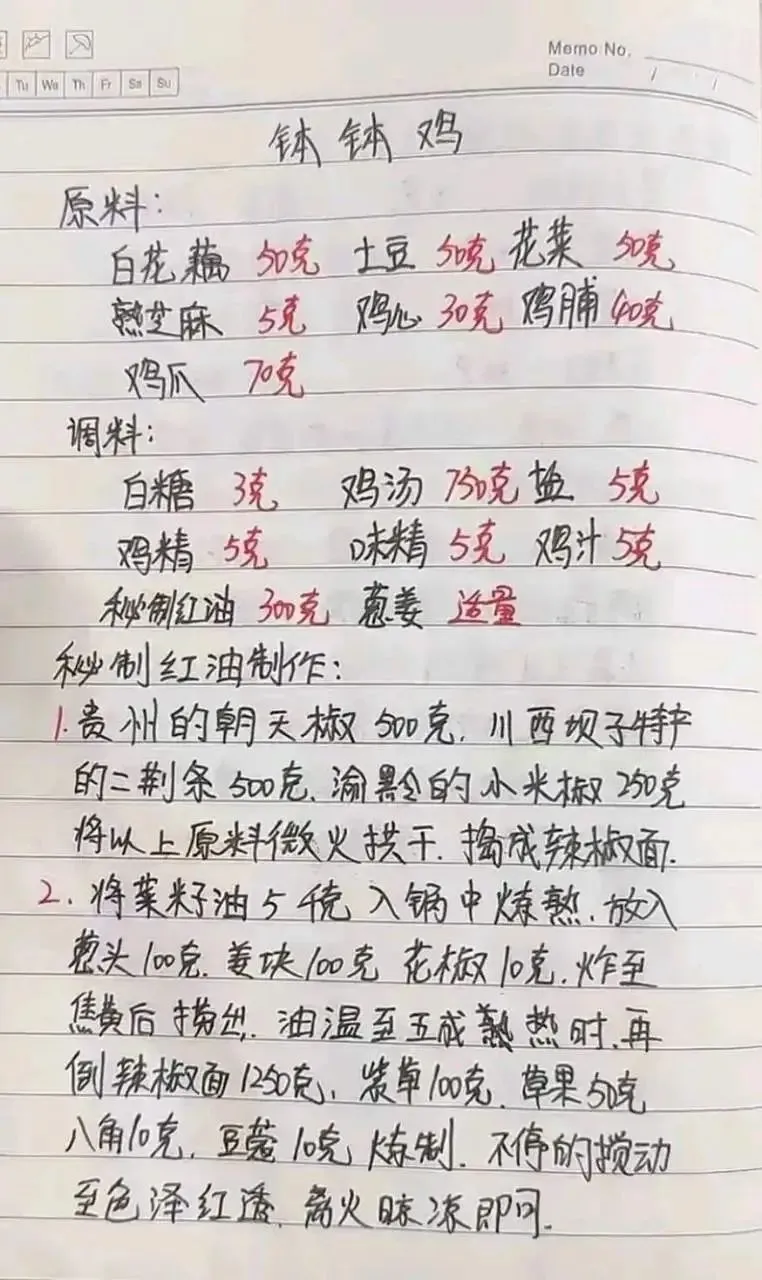 Memo No.
Date / /
Tu We Th Fr Sa Su
钵钵鸡
原料:
白花藕 50克 土豆 50克 花菜 50克
熟芝麻 5克 鸡心 30克 鸡脯 40克
鸡爪 70克
调料:
白糖 3克 鸡汤 750克 盐 5克
鸡精 5克 味精 5克 鸡汁 5克
秘制红油 300克 葱姜 适量
秘制红油制作:
1.贵州的朝天椒500克,川西坝子特产
的二荆条500克,渝黔的小米椒250克
将以上原料微火拱干,捣成辣椒面.
2.将菜籽油5千克入锅中炼熟,放入
葱头100克,姜块100克 花椒10克,炸至
焦黄后捞出,油温至五成熟热时,再
倒辣椒面1250克,紫草100克,草果50克
八角10克,豆蔻10克炼制,不停的搅动
至色泽红透,离火晾凉即可.